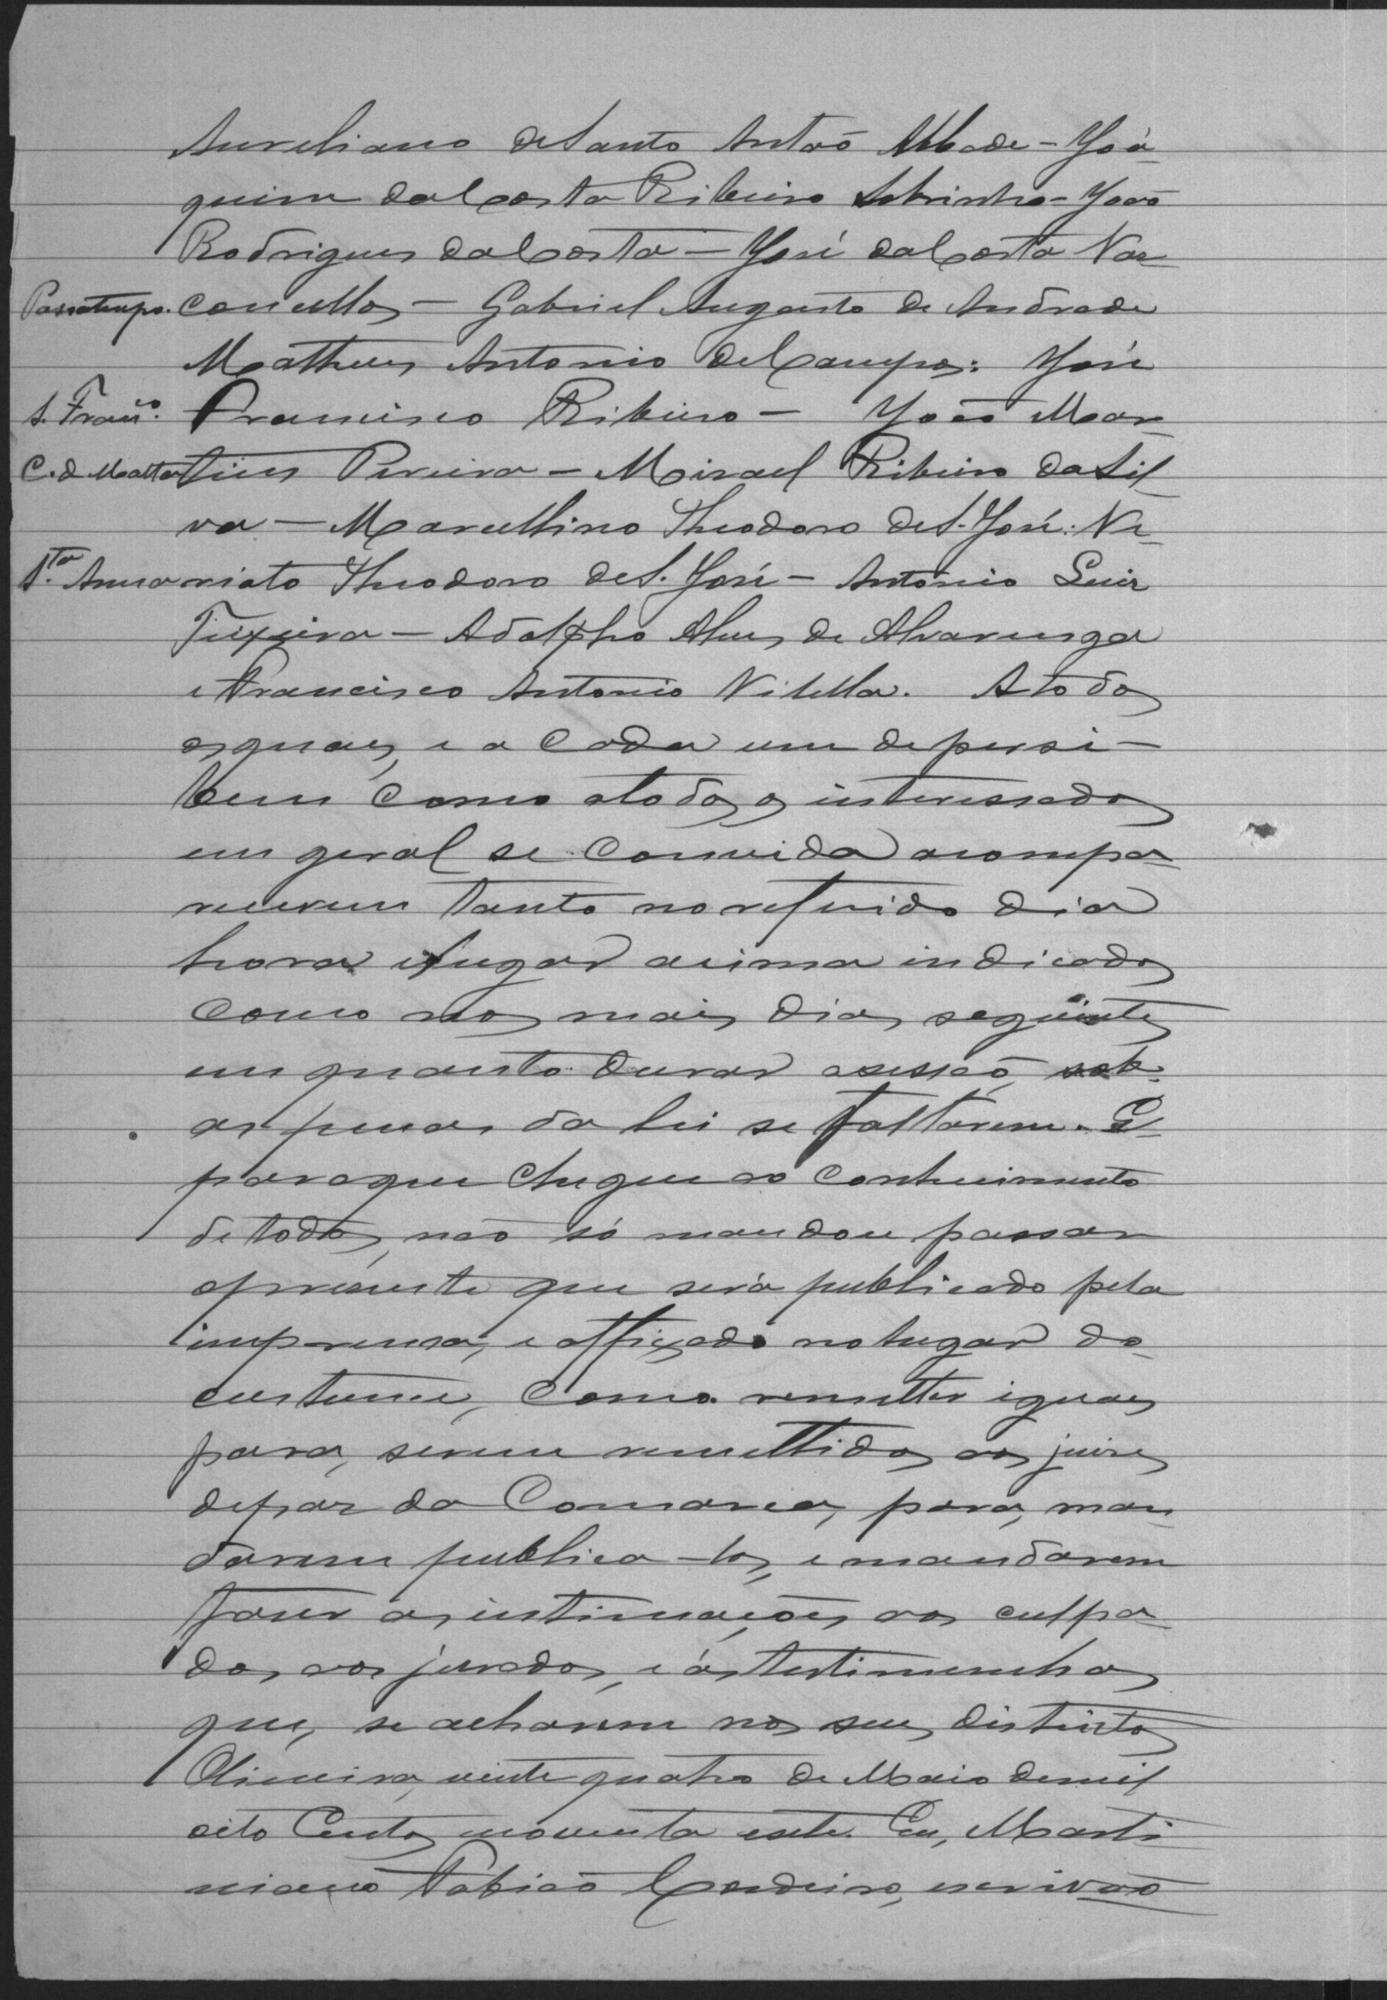 Aureliano de Santo Antão Abbade - Joa-
quim da Costa Ribeiro Sobrinho - João
Rodrigues da Costa - José da Costa Vas-
Passatempo. concellos - Gabriel Augusto de Andrade
Matheus Antonio de Campos: José
S. Franco. Francisco Ribeiro - João Mar-
C. da Matta tins Pereira - Misael Ribeiro da Sil-
va - Marcellino Theodoro de S. José: Ve-
Sta. Anna riato Theodoro de S. José - Antonio Luiz
Teixeira - Adolpho Alves de Alvarenga
e Francisco Antonio Vilella. A todos
os quaes, e a cada um de per si -
bem como a todos os interessados
em geral se convida a compa-
recerem tanto no referido dia
hora e lugar acima indicados
como nos mais dias seguintes
em quanto durar a sessão, sob
as penas da lei se faltarem. E
para que chegue ao conhecimento
de todos, não só mandou passar
o presente que será publicado pela
imprensa, e affixado no lugar do
custume, como remetter iguaes
para, serem remettidos aos juizes
de paz da Comarca, para, man-
darem publica-los, e mandarem
fazer as intimações aos culpa-
dos, aos jurados, e ás testimunhas
que, se acharem nos seus districtos
Oliveira, vinte quatro de Maio de mil
oito Centos noventa e sete. Eu, Marti
niano Fabião Cordeiro, escrivão